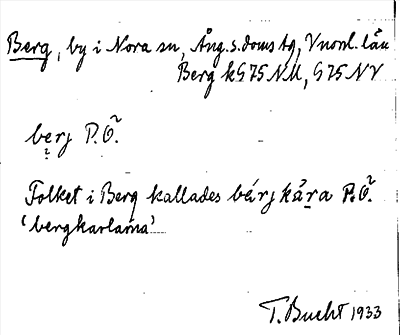 Berg, by i Nora sn, Ång. s. doms tg, Vnorrl. län
Berg k G 75 NU, G 75 NV
berj P.Ö.
Folket i Berg kallades bérj kára P.Ö.
'bergkarlarna'
T. Bucht 1933